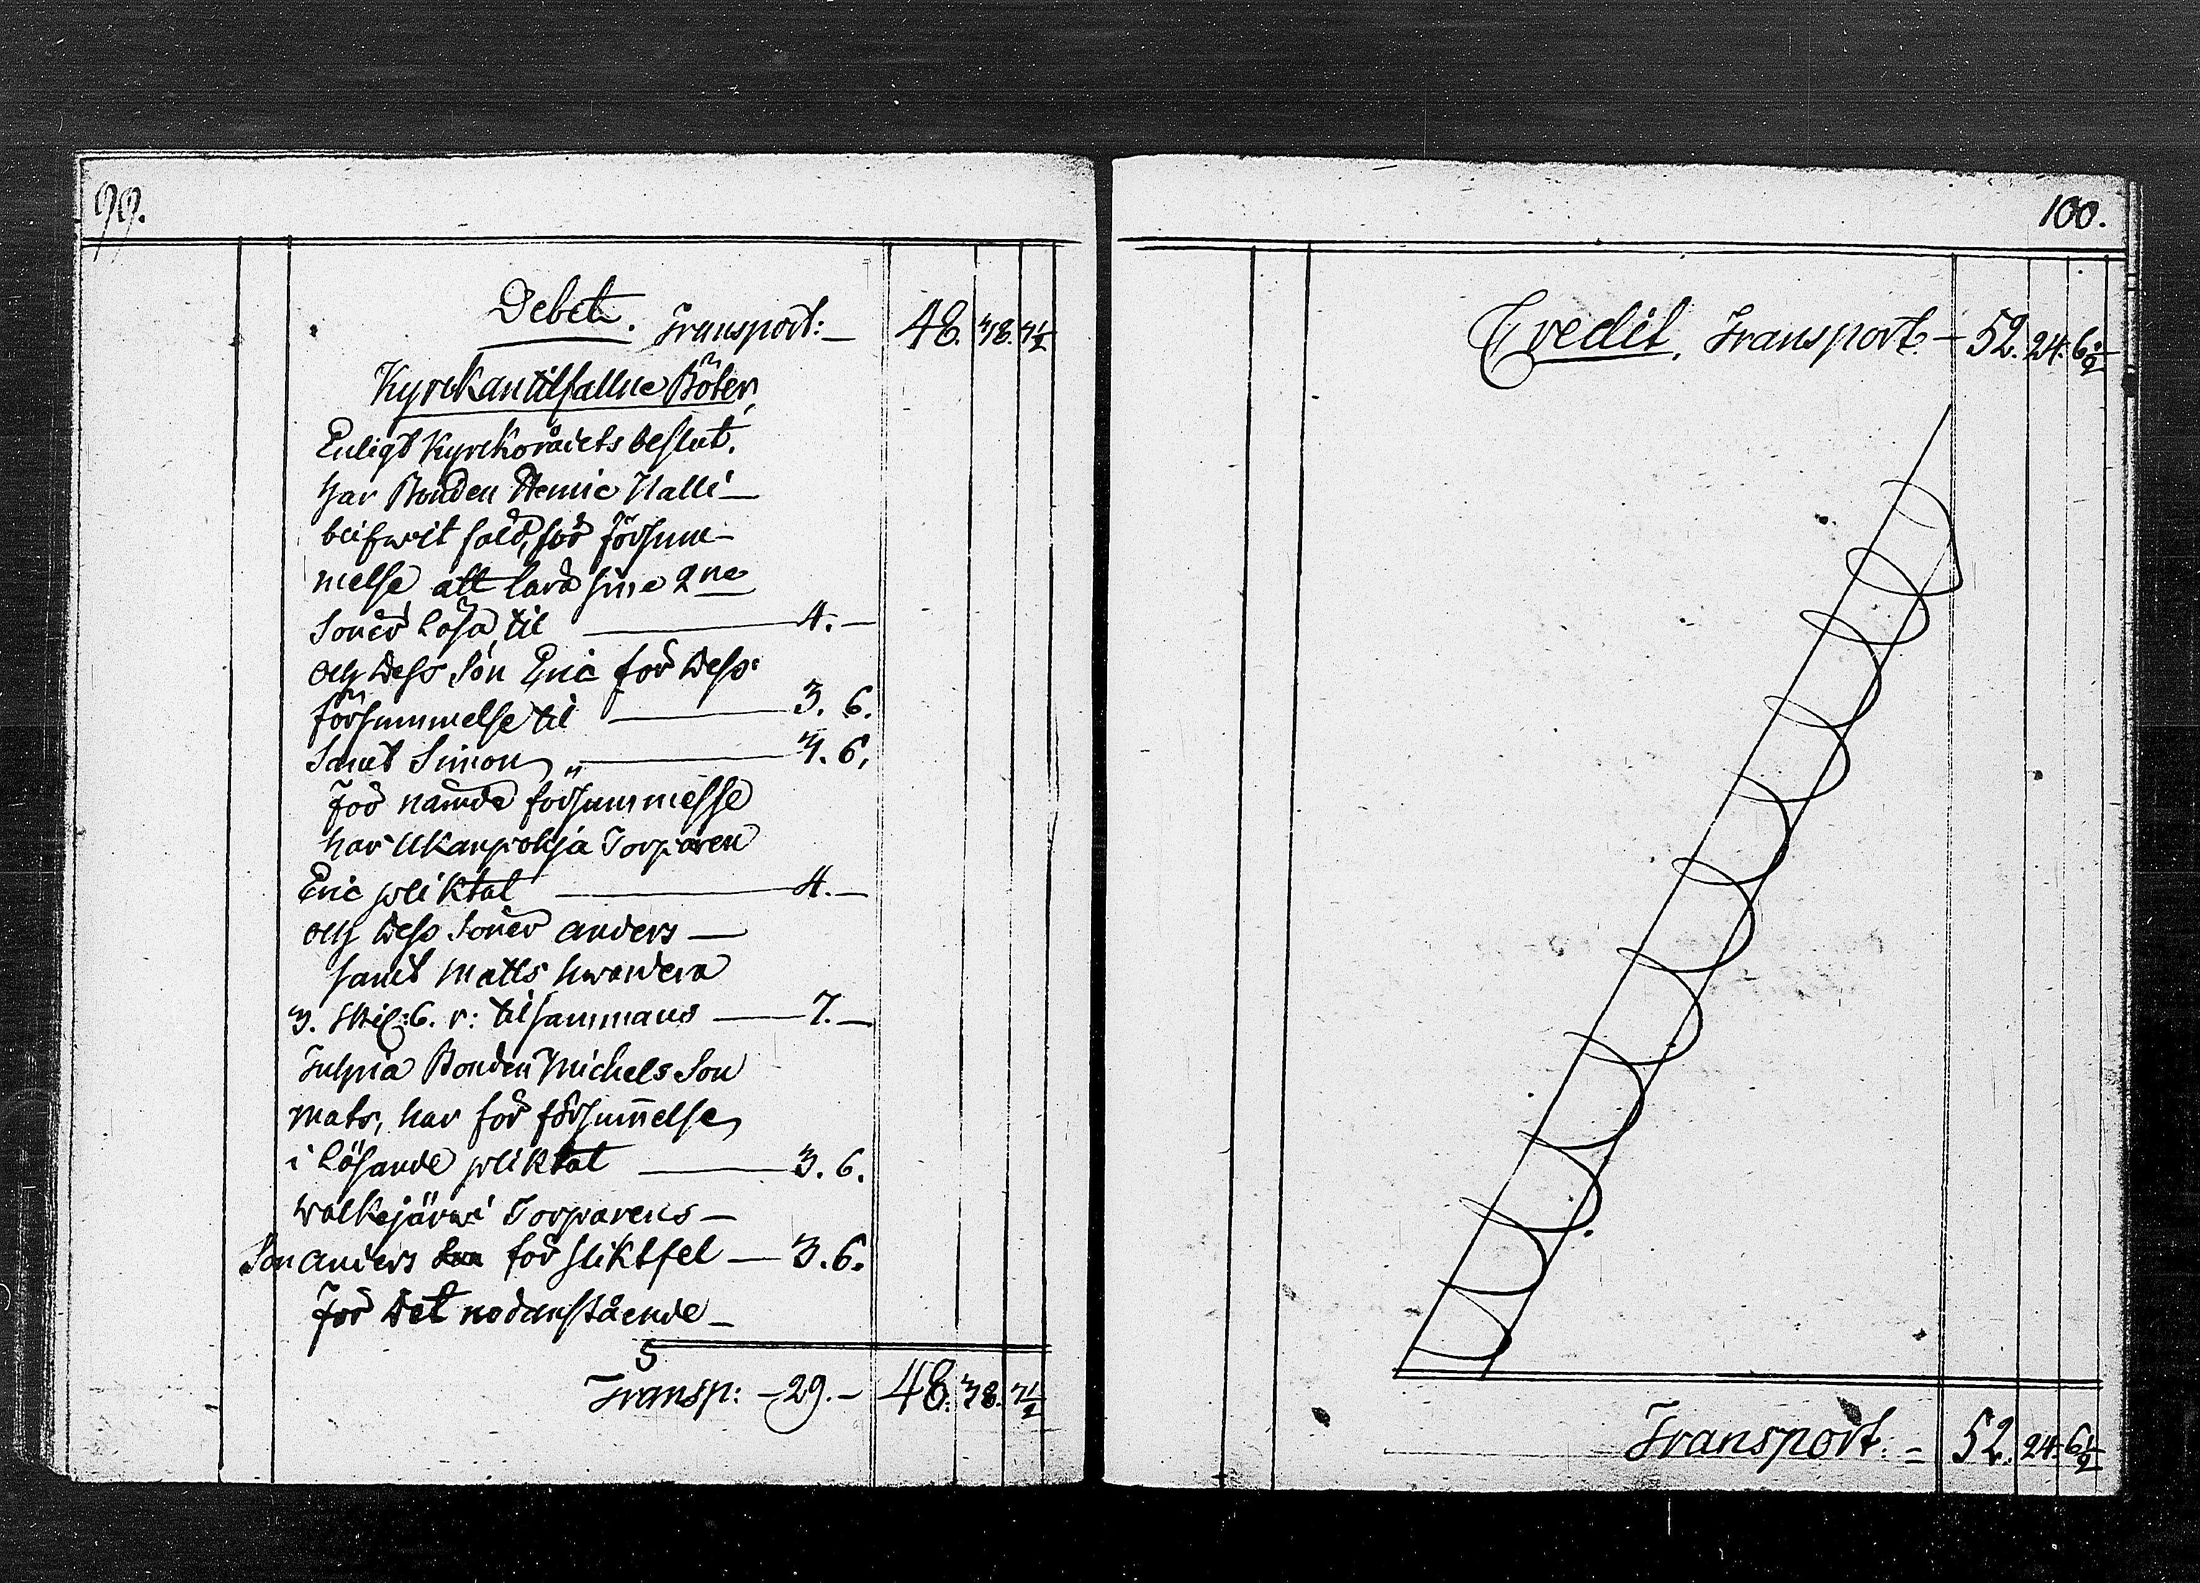 99.
Debet. Transport: — 48. 38. 3½
Kyrckan tilfallne Böter,
Enligt Kyrckorådets beslut.
har Bonden Henric Nalli —
blifwit fäld, för försum-
melse att lära sine 2ne
Söner läsa, til — 4. —
och dess Son Eric för dess
försummelse til — 3. 6.
Samt Simon „ — 3. 6.
för nämde försummelse
har Ukanpohja Torparen
Eric pliktat — 4. —
och dess Söner Anders —
samt Matts hwardera
3. Skil: 6. r: tilsammans — 7. —
Bonden Michels Son
Mats, har för försum̄else
i läsande pliktat — 3. 6.
Walkejärwi Torparens —
Son Anders för slikt fel — 3. 6.
för det nedanstående —
Transp: — 29. — 48. 38. 3½
100.
Credit. Transport. — 52. 24. 6½
Transport: — 52. 24. 6½